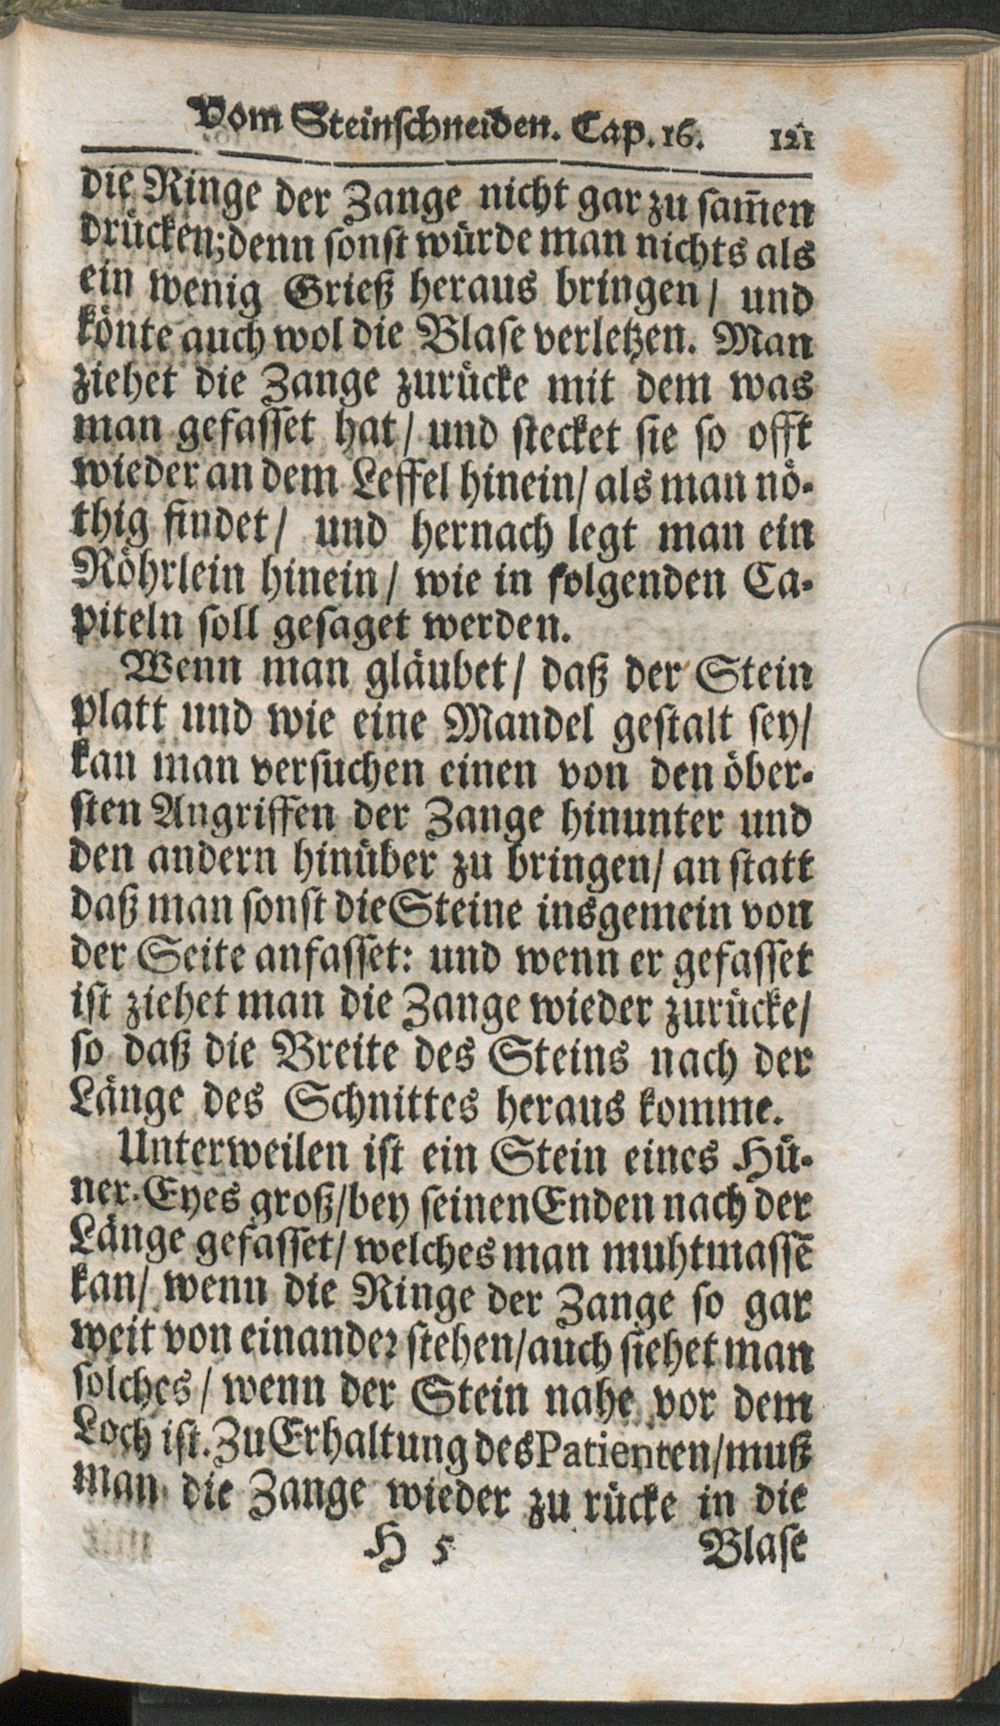 Vom Steinschneiden. Cap. 16. 121
die Ringe der Zange nicht gar zu sam̄en
drücken; denn sonst würde man nichts als
ein wenig Grieß heraus bringen / und
könte auch wol die Blase verletzen. Man
ziehet die Zange zurücke mit dem was
man gefasset hat / und stecket sie so offt
wieder an dem Leffel hinein / als man nö-
thig findet / und hernach legt man ein
Röhrlein hinein / wie in folgenden Ca-
piteln soll gesaget werden.
Wenn man gläubet / daß der Stein
platt und wie eine Mandel gestalt sey /
kan man versuchen einen von den öber-
sten Angriffen der Zange hinunter und
den andern hinüber zu bringen / an statt
daß man sonst die Steine insgemein von
der Seite anfasset: und wenn er gefasset
ist ziehet man die Zange wieder zurücke /
so daß die Breite des Steins nach der
Länge des Schnittes heraus komme.
Unterweilen ist ein Stein eines Hü-
ner-Eyes groß / bey seinen Enden nach der
Länge gefasset / welches man muhtmassē
kan / wenn die Ringe der Zange so gar
weit von einander stehen / auch siehet man
solches / wenn der Stein nahe vor dem
Loch ist. Zu Erhaltung des Patienten / muß
man die Zange wieder zu rücke in die
H 5 Blase